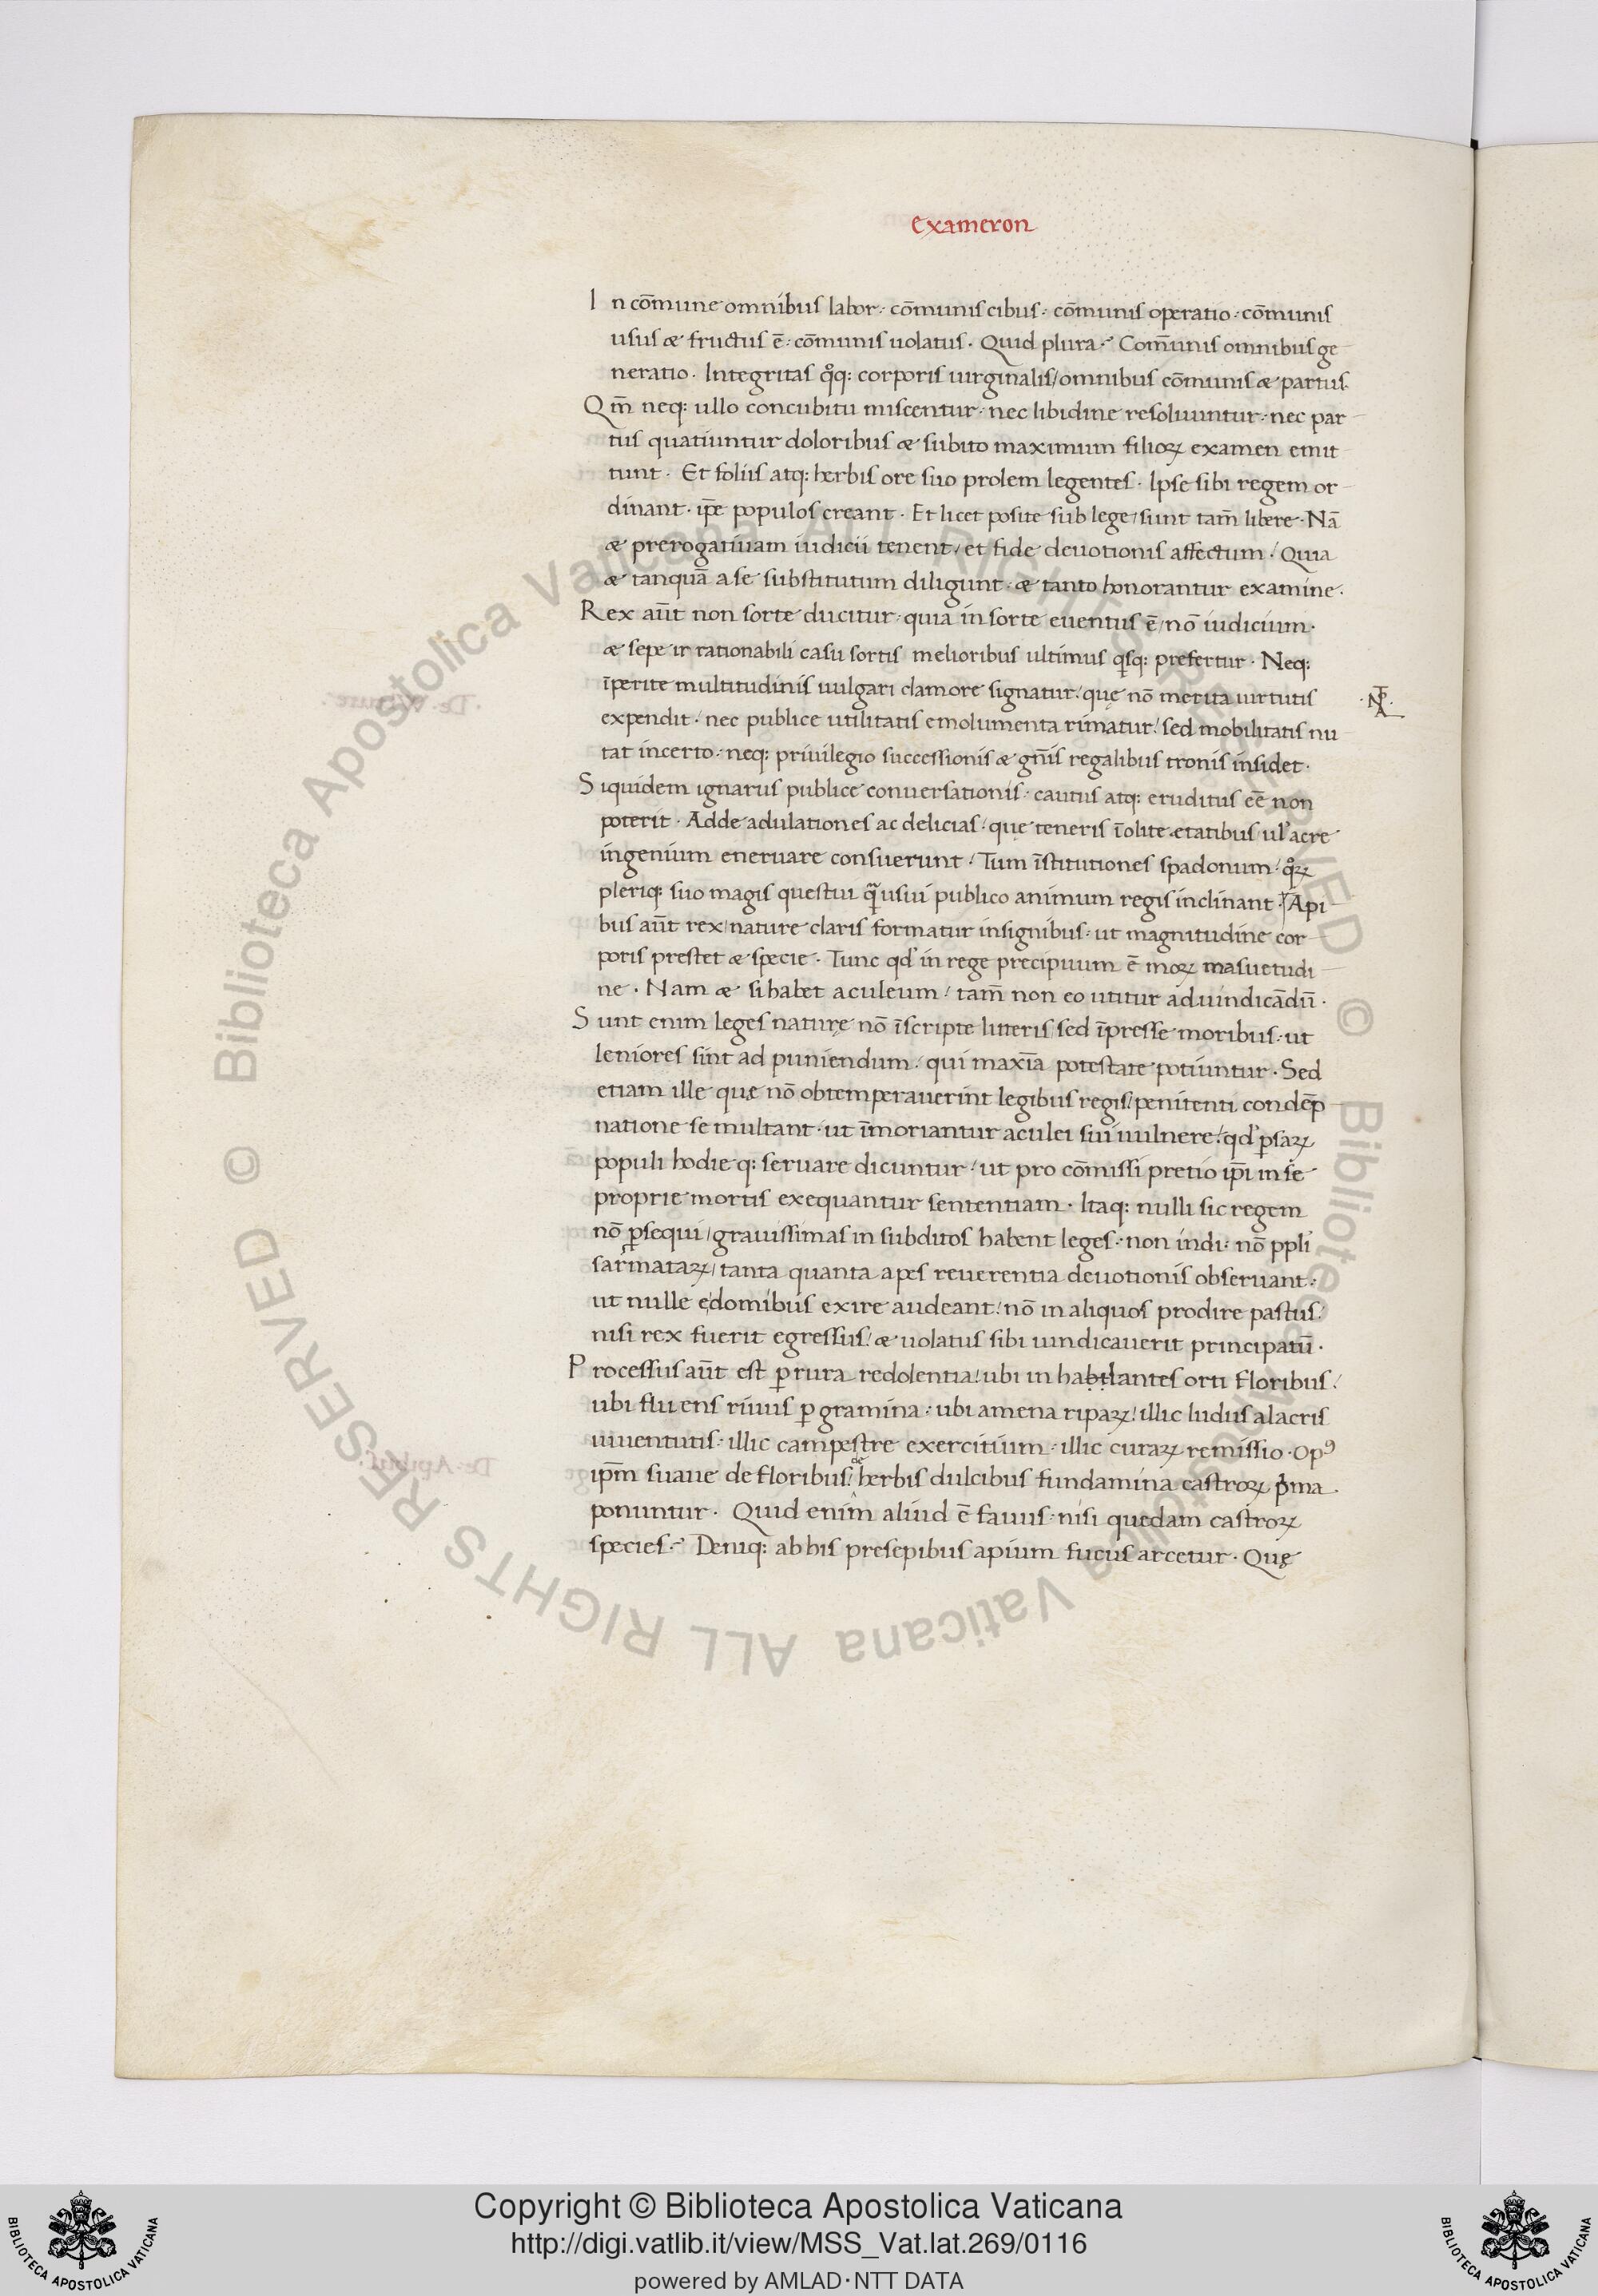 Exameron
In cōmune omnibus labor: cōmunis cibus: cōmunis operatio: cōmunis
usus æ fructus ē: cōmunis uolatus. Quid plura? Com̄unis omnibus ge
neratio. Integritas qͦq: corporis uirginalis/omnibus cōmunis æ partus.
Qm̄ neq: ullo concubitu miscentur: nec libidine resoluuntur: nec par
tus quatiuntur doloribus æ subito maximum filioꝝ examen emit
tunt. Et foliis atq: herbis ore suo prolem legentes. Ipse sibi regem or
dinant. ip̄e populos creant. Et licet posite sub lege/sunt tam̄ libere. Nā
æ prerogatiuam iudicii tenent/et fide deuotionis affectum/Quia
æ tanquā a se substitutum diligunt: æ tanto honorantur examine.
Rex aūt non sorte ducitur: quia in sorte euentus ē/nō iudicium.
æ sepe ir rationabili casu sortis melioribus ultimus qͥsq: prefertur. Neq:
īperite multitudinis uulgari clamore signatur/quę nō merita uirtutis
expendit/nec publice utilitatis emolumenta rimatur/sed mobilitatis nu
tat incerto: neq: priuilegio successionis æ gn̄is regalibus tronis insidet.
Siquidem ignarus publice conuersationis: cautus atq: eruditus eē non
poterit. Adde adulationes ac delicias/quę teneris īolite etatibus ul' acre
ingenium eneruare consuerunt/Tum īstitutiones spadonum/qͦꝝ
pleriq: suo magis questui qᷓ usui publico animum regis inclinant. Api
bus aūt rex/nature claris formatur insignibus: ut magnitudine cor
poris prestet æ specie. Tunc qd' in rege precipuum ē moꝝ masuetudi
ne. Nam æ si habet aculeum/tam̄ non eo utitur ad uindicādū.
Sunt enim leges naturę nō īscripte litteris/sed īpresse moribus: ut
leniores sint ad puniendum/qui maxīa potestate potiuntur. Sed
etiam ille quę nō obtemperauerint legibus regis/penitenti condēp
natione se multant: ut īmoriantur aculei sui uulnere/qd' ꝑsaꝝ
populi hodie q: seruare dicuntur/ut pro cōmissi pretio ip̄i in se
proprie mortis exequantur sententiam. Itaq: nulli sic regem
nō ꝑsequi/grauissimas in subditos habent leges: non indi: nō ppli
sarmataꝝ/tanta quanta apes reuerentia deuotionis obseruant:
ut nulle e domibus exire audeant/nō in aliquos prodire pastus:
nisi rex fuerit egressus/æ uolatus sibi uindicauerit principatū.
Processus aūt est ꝑ rura redolentia/ubi in habtlantes orti floribus/
ubi flu ens riuus ꝑ gramina: ubi amena ripaꝝ/illic ludus alacris
iuuentutis: illic campestre exercitium: illic curaꝝ remissio. Opꝰ
ipm̄ suaue de floribus/de herbis dulcibus fundamina castroꝝ pͥma
ponuntur. Quid enim aliud ē fauus: nisi quedam castroꝝ
species? Deniq: ab his presepibus apium fucus arcetur. Quę
Copyright © Biblioteca Apostolica Vaticana
http://digi.vatlib.it/view/MSS_Vat.lat.269/0116
powered by AMLAD·NTT DATA
BIBLIOTECA APOSTOLICA VATICANA
BIBLIOTECA APOSTOLICA VATICANA
© Biblioteca Apostolica Vaticana ALL RIGHTS RESERVED © Biblioteca Apostolica Vaticana ALL RIGHTS RESERVED